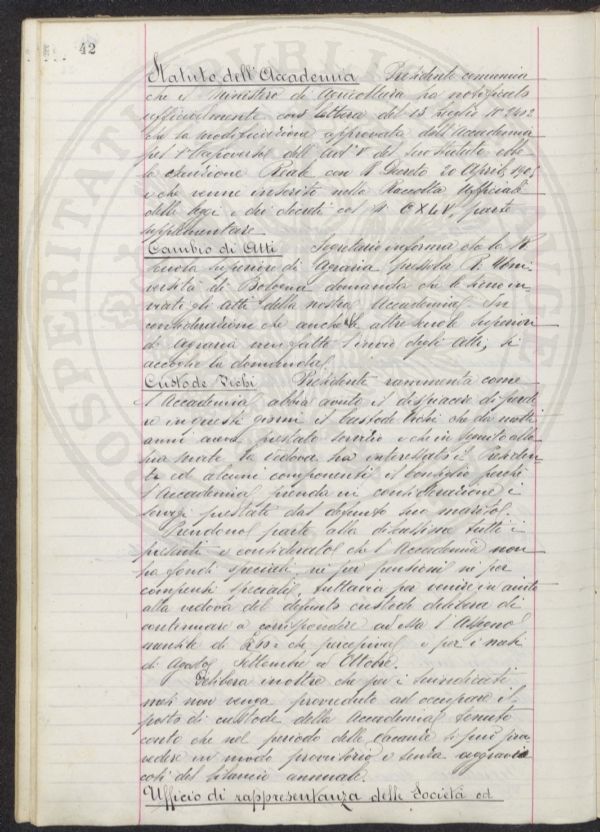 42
Statuto dell'Accademia Presidente comunica
che il Ministero di Agricoltura ha notificato
ufficialmente con lettera del 13 Luglio N° 2402
che la modificazione approvata dall'Accademia
pel 1° Capoverso dell'art° V° del suo statuto ebbe
la sanzione Reale con R Decreto 20 April 1905
e che venne inserito nella Raccolta Ufficiale
delle leggi e dei decreti col N. CXLV, parte
supplementare.
Cambio di Atti Segretario informa che la R
Scuola Superiore di Agraria presso la R. Uni-
versità di Bologna domanda che le sieno in-
viati gli atti della nostra Accademia. In
considerazione che anche le altre scuole superiori
di agraria vien fatto l'invio degli Atti, si
accoglie la domanda.
Custode Vichi Presidente rammenta come
l'Accademia abbia avuto il dispiacere di perde
re in questi giorni il custode Vichi che da molti
anni aveva prestato servizio e che in seguito alla
sua morte la vedova ha interessato il Presiden-
te ed alcuni componenti il Consiglio perchè
l'Accademia prenda in considerazione i
servizi prestati dal defunto suo marito.
Prendono parte alla discussione tutti i
presenti e considerato che l'Accademia non
ha fondi speciali nè per pensioni nè per
compensi speciali, tuttavia per venire in aiuto
alla vedova del defunto custode delibera di
continuare a corrispondere ad essa l'assegno
mensile di che percepiva e per i mesi
di Agosto, Settembre ed Ottobre.
Delibera inoltre che per i suindicati
mesi non venga provveduto ad occupare il
posto di custode della Accademia tenuto
conto che nel periodo delle vacanze si può prov
vedere in modo provvisorio e senza aggravio
così del bilancio annuale.
Ufficio di rappresentanza delle Società ed